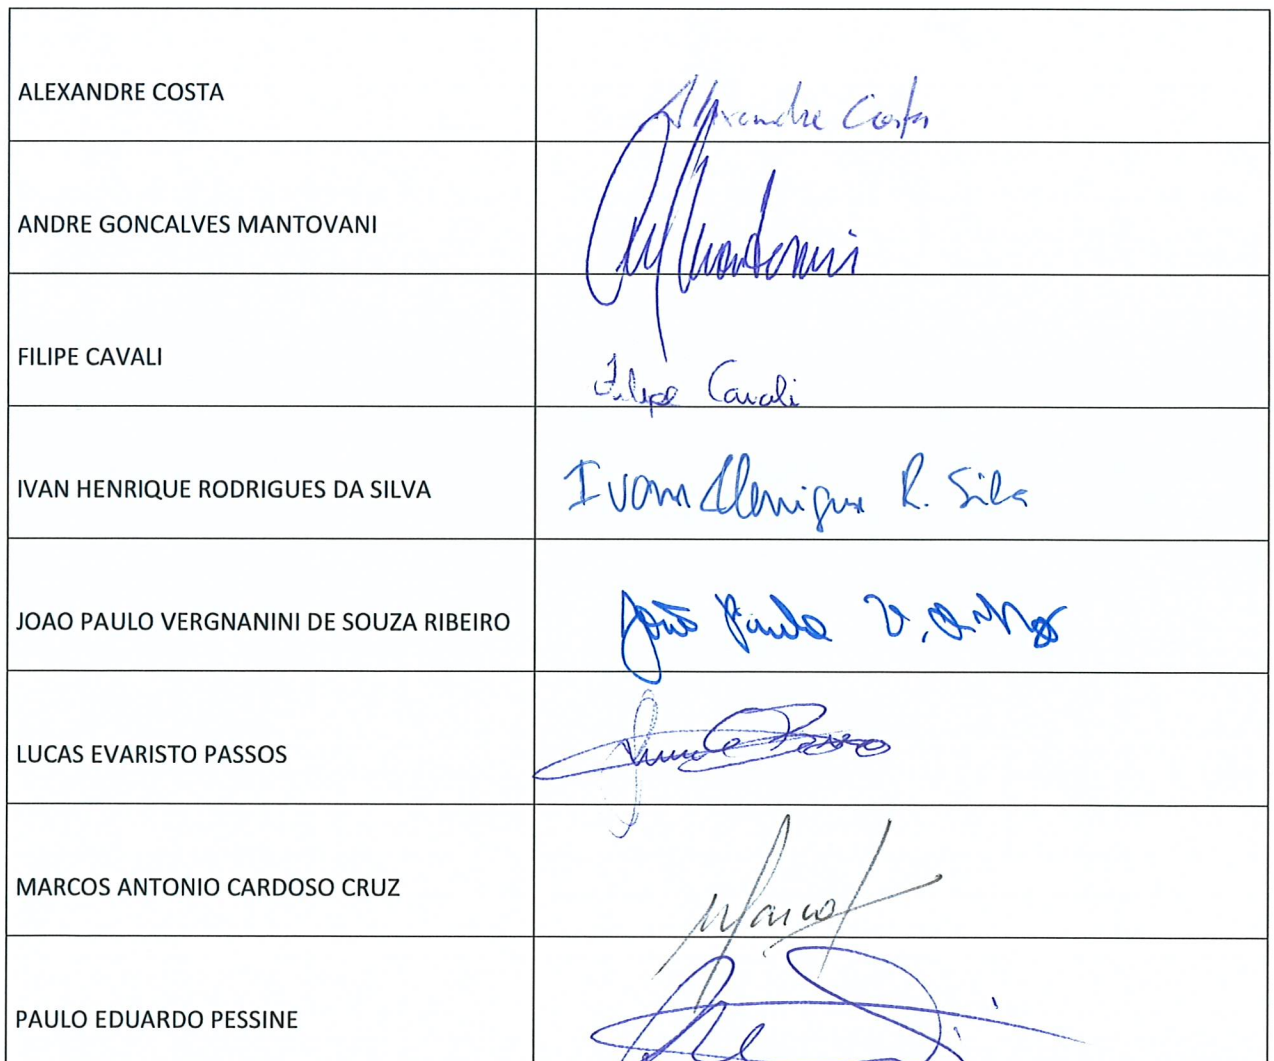 ALEXANDRE COSTA
Alexandre Costa
ANDRE GONCALVES MANTOVANI
Mantovani
FILIPE CAVALI
Filipe Cavali
IVAN HENRIQUE RODRIGUES DA SILVA
Ivan Henrique R. Silva
JOAO PAULO VERGNANINI DE SOUZA RIBEIRO
João Paulo V.
LUCAS EVARISTO PASSOS
MARCOS ANTONIO CARDOSO CRUZ
Marcos
PAULO EDUARDO PESSINE